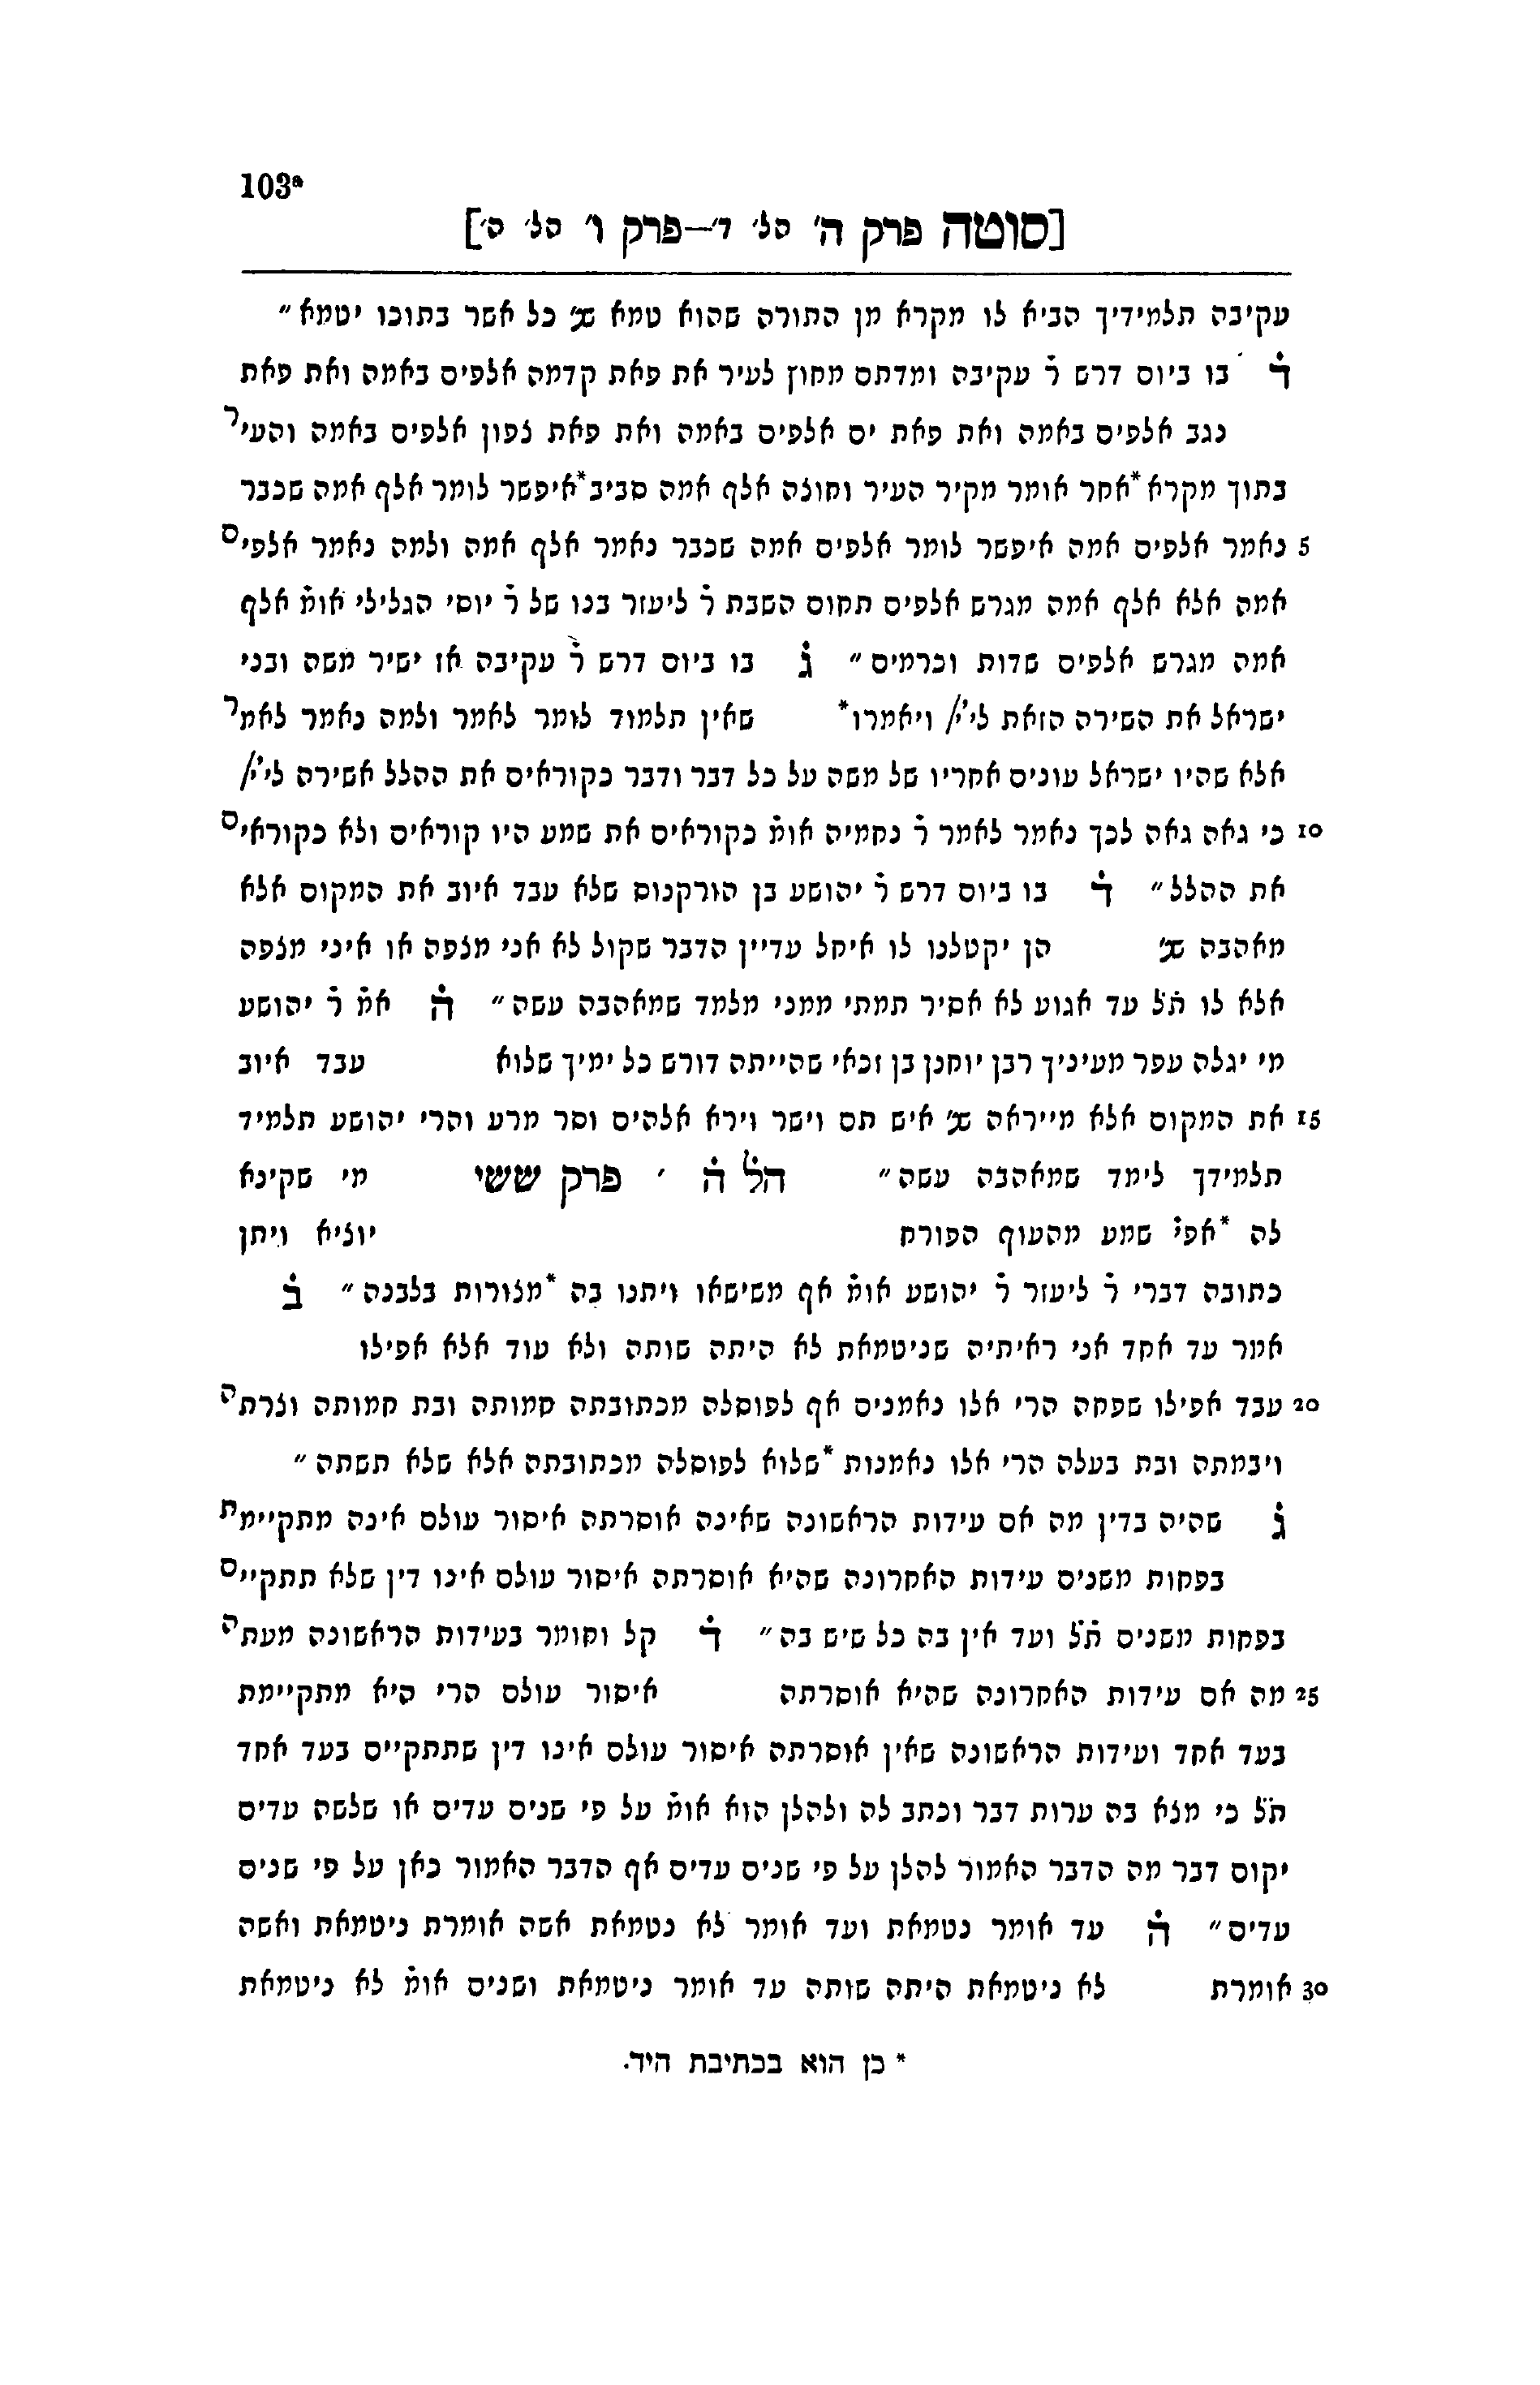 103a
[סוטה פרק ה' הל' ד'—פרק ו' הל' ה']
עקיבה תלמידיך הביא לו מקרא מן התורה שהוא טמא שנ' כל אשר בתוכו יטמא "
ד̇ בו ביום דרש ר̇ עקיבה ומדתם מחוץ לעיר את פאת קדמה אלפים באמה ואת פאת
נגב אלפים באמה ואת פאת ים אלפים באמה ואת פאת צפון אלפים באמה והעיר
בתוך מקרא *אחר אומר מקיר העיר וחוצה אלף אמה סביב *איפשר לומר אלף אמה שכבר
5 נאמר אלפים אמה איפשר לומר אלפים אמה שכבר נאמר אלף אמה ולמה נאמר אלפים
אמה אלא אלף אמה מגרש אלפים תחום השבת ר̇ ליעזר בנו של ר̇ יוסי הגלילי אומ̇ אלף
אמה מגרש אלפים שדות וכרמים " ג̇ בו ביום דרש ר̇ עקיבה אז ישיר משה ובני
ישראל את השירה הזאת ליי' ויאמרו* שאין תלמוד לומר לאמר ולמה נאמר לאמר
אלא שהיו ישראל עונים אחריו של משה על כל דבר ודבר כקוראים את ההלל אשירה ליי'
10 כי גאה גאה לכך נאמר לאמר ר̇ נחמיה אומ̇ כקוראים את שמע היו קוראים ולא כקוראים
את ההלל " ד̇ בו ביום דרש ר̇ יהושע בן הורקנוס שלא עבד איוב את המקום אלא
מאהבה שנ' הן יקטלנו לו איחל עדיין הדבר שקול לא אני מצפה או איני מצפה
אלא לו ת̇ל̇ עד אגוע לא אסיר תמתי ממני מלמד שמאהבה עשה " ה̇ אמ̇ ר̇ יהושע
מי יגלה עפר מעיניך רבן יוחנן בן זכאי שהייתה דורש כל ימיך שלוא עבד איוב
15 את המקום אלא מייראה שנ' איש תם וישר וירא אלהים וסר מרע והרי יהושע תלמיד
תלמידך לימד שמאהבה עשה " הל ה̇ ' פרק ששי מי שקינא
לה *אפי̇ שמע מהעוף הפורח יוציא ויתן
כתובה דברי ר̇ ליעזר ר̇ יהושע אומ̇ אף משישאו ויתנו בה *מוצרות בלבנה " ב̇
אמר עד אחד אני ראיתיה שניטמאת לא היתה שותה ולא עוד אלא אפילו
20 עבד אפילו שפחה הרי אלו נאמנים אף לפוסלה מכתובתה חמותה ובת חמותה וצרתה
ויבמתה ובת בעלה הרי אלו נאמנות *שלוא לפוסלה מכתובתה אלא שלא תשתה "
ג̇ שהיה בדין מה אם עידות הראשונה שאינה אוסרתה איסור עולם אינה מתקיימת
בפחות משנים עידות האחרונה שהיא אוסרתה איסור עולם אינו דין שלא תתקיים
בפחות משנים ת̇ל̇ ועד אין בה כל שיש בה " ד̇ קל וחומר בעידות הראשונה מעתה
25 מה אם עידות האחרונה שהיא אוסרתה איסור עולם הרי היא מתקיימת
בעד אחד ועידות הראשונה שאין אוסרתה איסור עולם אינו דין שתתקיים בעד אחד
ת̇ל̇ כי מצא בה ערות דבר וכתב לה ולהלן הוא אומ̇ על פי שנים עדים או שלשה עדים
יקום דבר מה הדבר האמור להלן על פי שנים עדים אף הדבר האמור כאן על פי שנים
עדים " ה̇ עד אומר נטמאת ועד אומר לא נטמאת אשה אומרת ניטמאת ואשה
30 אומרת לא ניטמאת היתה שותה עד אומר ניטמאת ושנים אומ̇ לא ניטמאת
* כן הוא בכתיבת היד.